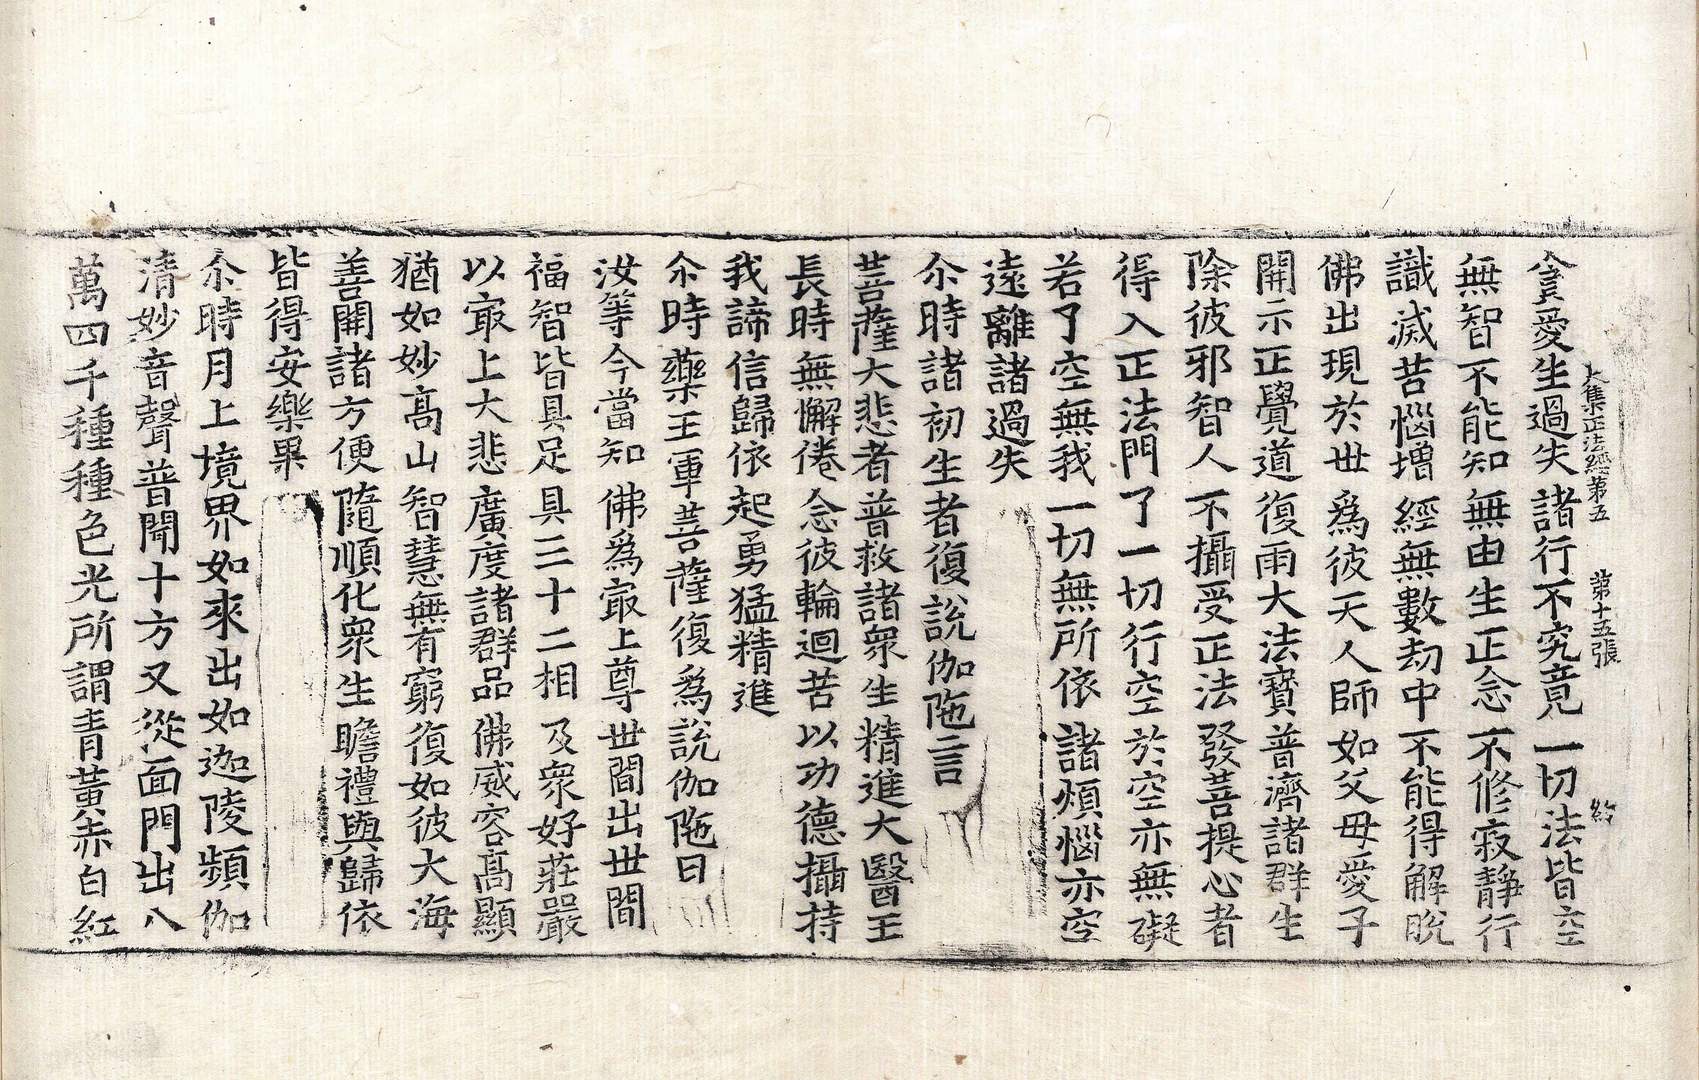 貪愛生過失 諸行不究竟 一切法皆空
大集正法經第五 第十五張 給
無智不能知 無由生正念 不修寂靜行
識滅苦惱增 經無數劫中 不能得解脫
佛出現於世 爲彼天人師 如父母愛子
開示正覺道 復雨大法寶 普濟諸群生
除彼邪智人 不攝受正法 發菩提心者
得入正法門 了一切行空 於空亦無礙
若了空無我 一切無所依 諸煩惱亦空
遠離諸過失
尒時諸初生者復說伽陁言
菩薩大悲者 普救諸衆生 精進大醫王
長時無懈倦 念彼輪迴苦 以功德攝持
我諦信歸依 起勇猛精進
尒時藥王軍菩薩復爲說伽陁曰
汝等今當知 佛爲㝡上尊 世間出世間
福智皆具足 具三十二相 及衆好莊嚴
以㝡上大悲 廣度諸群品 佛威容高顯
猶如妙高山 智慧無有窮 復如彼大海
善開諸方便 隨順化衆生 瞻禮與歸依
皆得安樂果
尒時月上境界如來出如迦陵頻伽
清妙音聲普聞十方又從面門出八
萬四千種種色光所謂青黃赤白紅